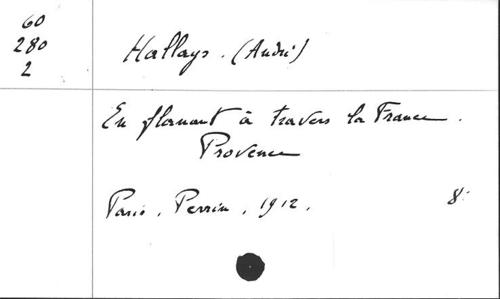 60
280
2
Hallays. (André)
En flanant à travers la France.
Provence
Paris. Perrin, 1912. 8º